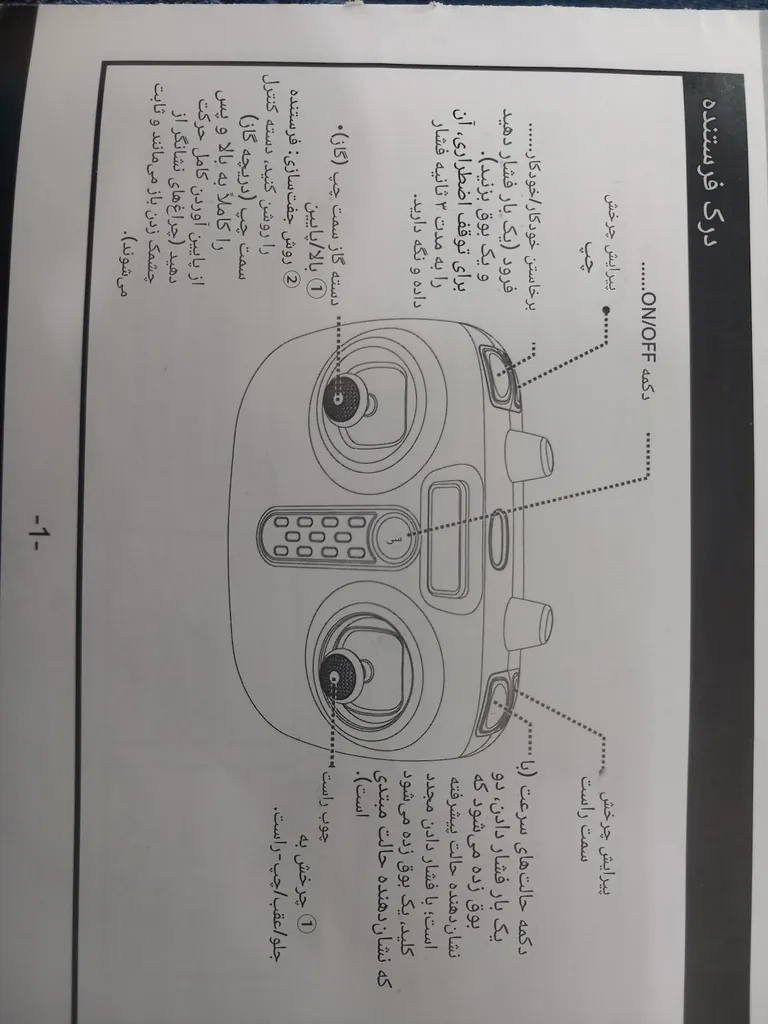 درک فرستنده
دکمه ON/OFF......
پیرایش چرخش
چپ
برخاستن خودکار/خودکار......
فرود (یک بار فشار دهید
و یک بوق بزنید).
برای توقف اضطراری، آن
را به مدت ۳ ثانیه فشار
داده و نگه دارید.
دسته گاز سمت چپ (گاز)•
① بالا/پایین
② روش جفت‌سازی: فرستنده
را روشن کنید، دسته کنترل
سمت چپ (دریچه گاز)
را کاملاً به بالا و پس
از پایین آوردن کامل حرکت
دهید (چراغ‌های نشانگر از
چشمک زدن باز می‌مانند و ثابت
می‌شوند).
پیرایش چرخش
سمت راست
دکمه حالت‌های سرعت (با
یک بار فشار دادن، دو
بوق زده می‌شود که
نشان‌دهنده حالت پیشرفته
است؛ با فشار دادن مجدد
کلید، یک بوق زده می‌شود
که نشان‌دهنده حالت مبتدی
است).
چوب راست
① چرخش به
جلو/عقب/چپ-راست.
-1-